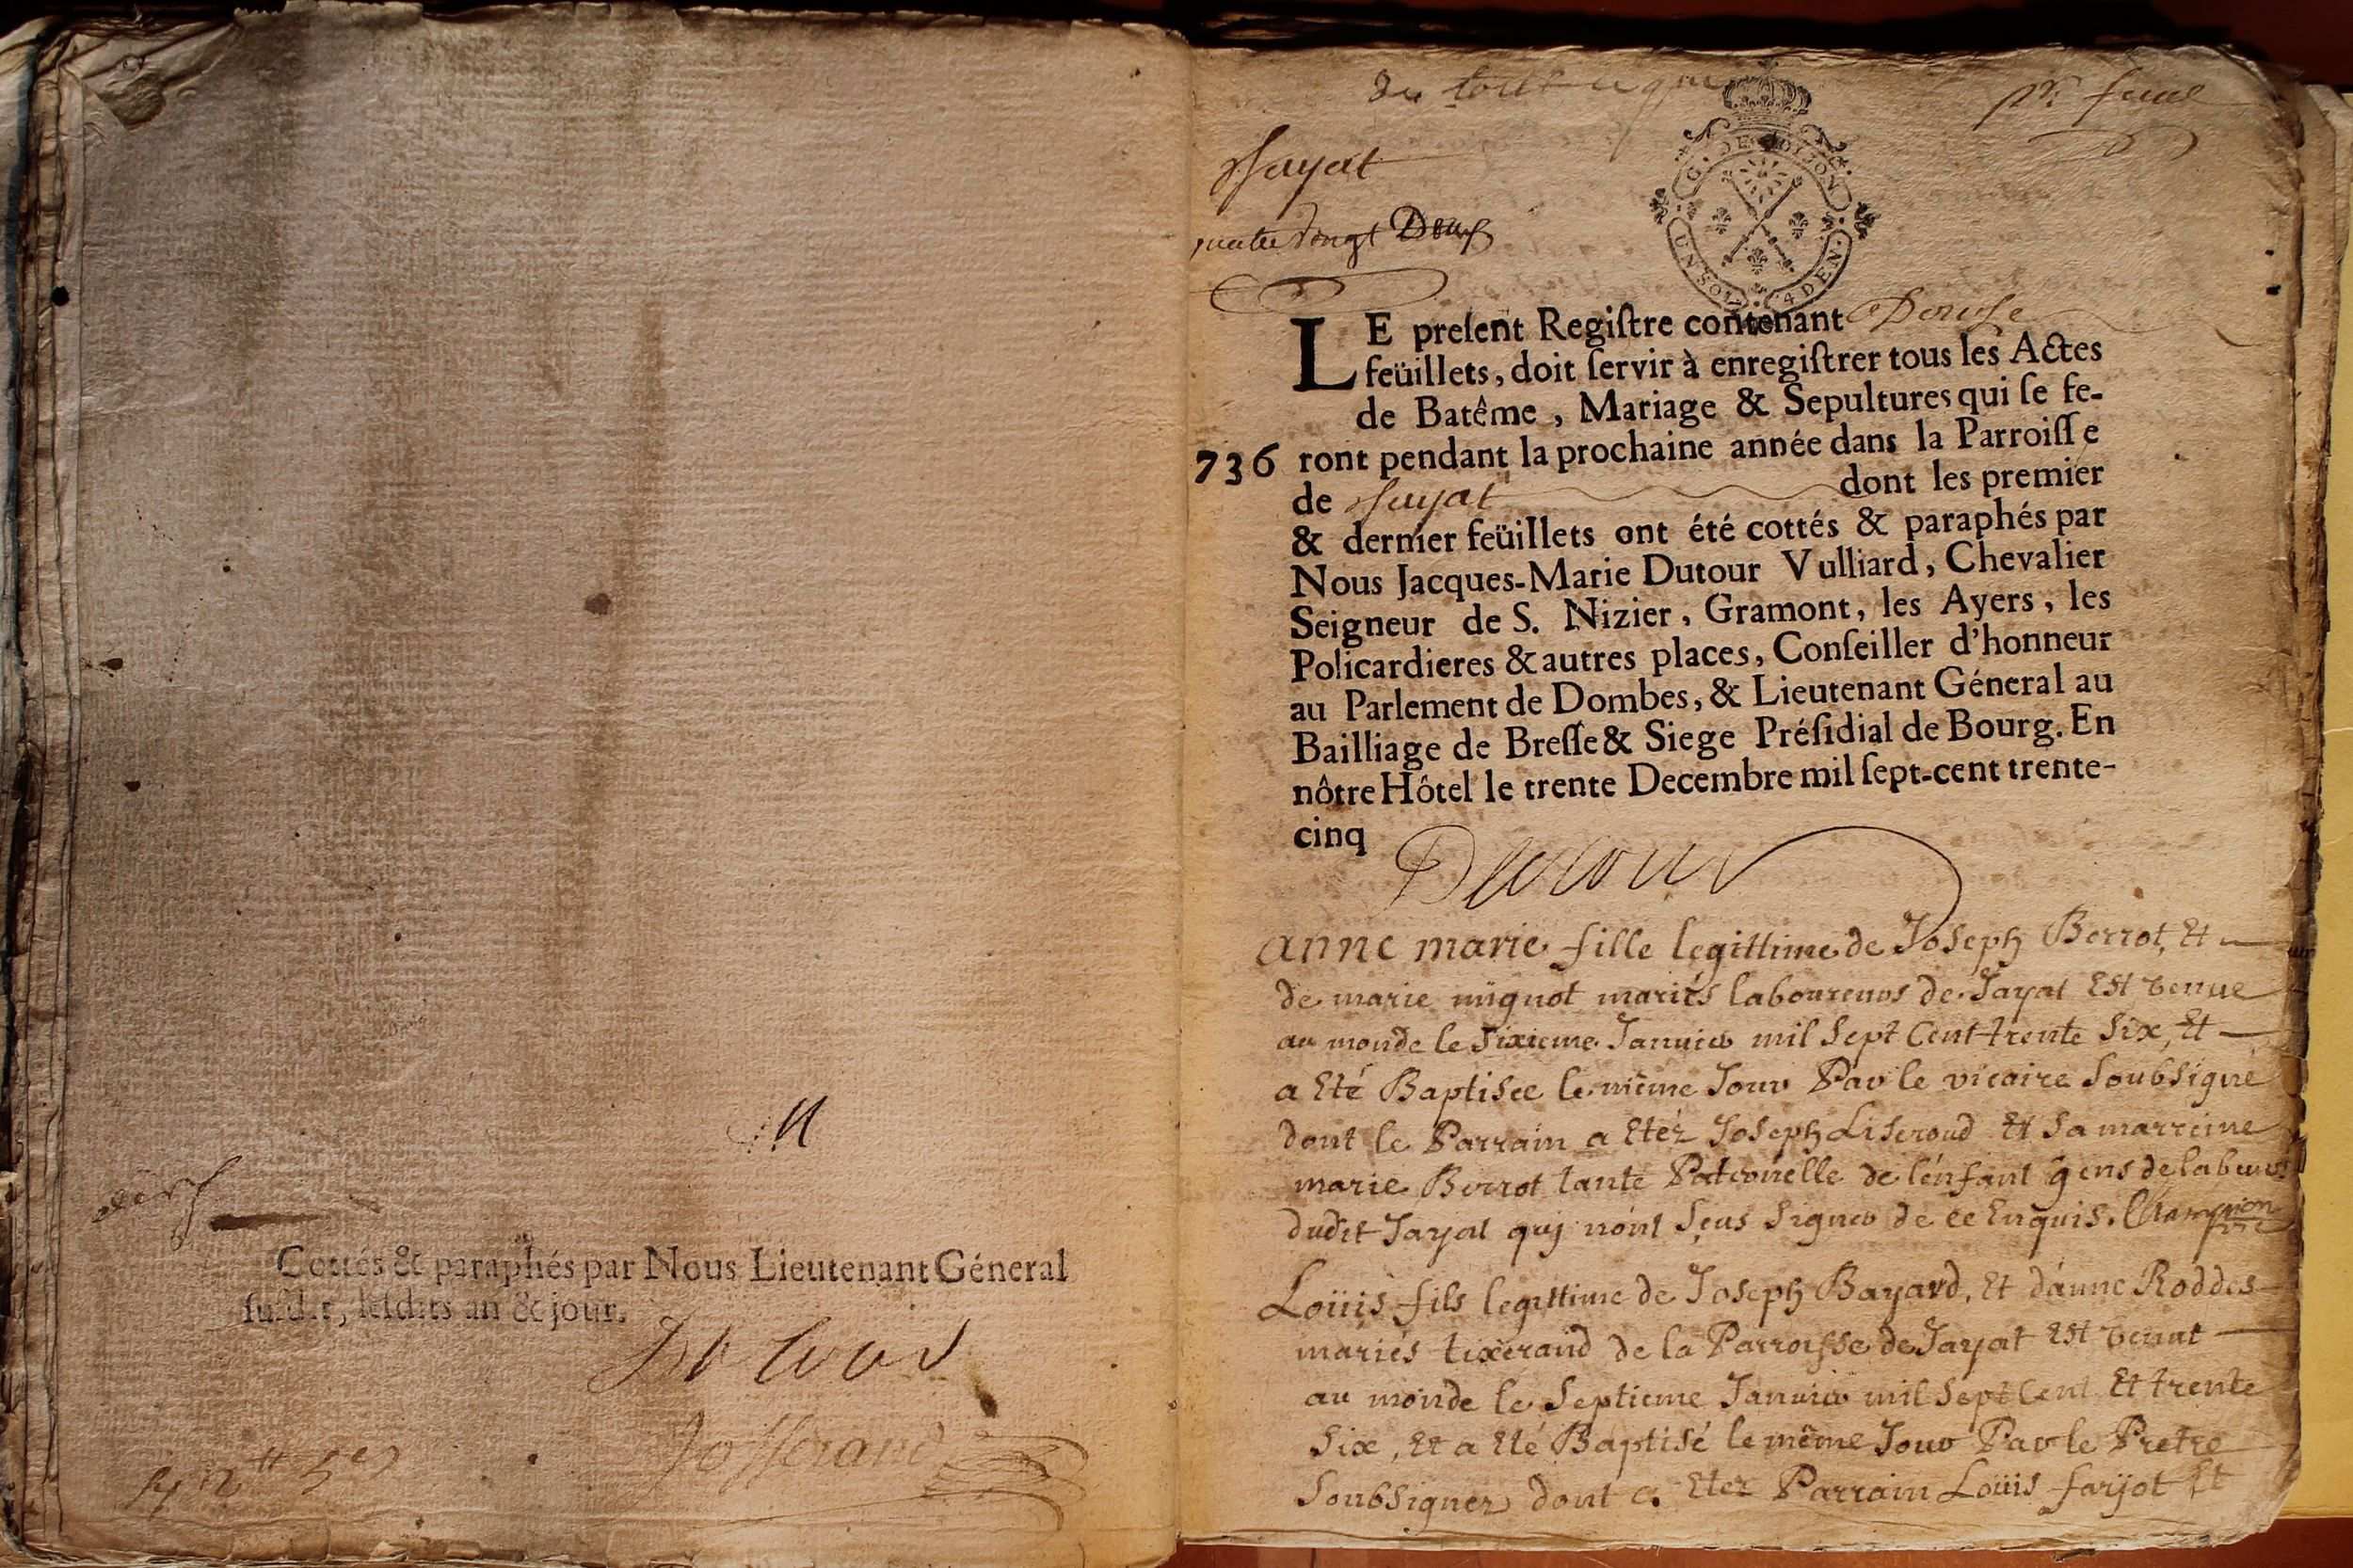 Cottés & paraphés par Nous Lieutenant Géneral
susdit, lesdits an & jour.
Dutour
Jofferand
Jayat
quatre vingt Deux
G. DE DIJON
UN SOL 4 DEN.
LE present Registre contenant Douse
feüillets, doit servir à enregistrer tous les Actes
de Batême, Mariage & Sepultures qui se fe-
736 ront pendant la prochaine année dans la Parroisse
de Jayat dont les premier
& dernier feüillets ont été cottés & paraphés par
Nous Jacques-Marie Dutour Vulliard, Chevalier
Seigneur de S. Nizier, Gramont, les Ayers, les
Policardieres & autres places, Conseiller d'honneur
au Parlement de Dombes, & Lieutenant Géneral au
Bailliage de Bresse & Siege Présidial de Bourg. En
nôtre Hôtel le trente Decembre mil sept-cent trente-
cinq
Dutour
anne marie fille legittime de Joseph Berrot, Et
de marie mignot mariés laboureurs de Jayat Est venue
au monde le sixieme Janvier mil Sept Cent trente Six, Et
a Eté Baptisee le même Jour Par le vicaire Soubsigné
dont le Parrain a Etéz Joseph Liseroud Et Sa marreine
marie Berrot tante Paternelle de l'énfant gens de labeur
dudit Jayat quj nónt Sçus Signer de ce Enquis. Champion
Loüis fils legittime de Joseph Bayard, Et d'ánne Roddes
mariés tixerand de la Parroisse de Jayat Est venut
au monde le Septieme Janvier mil Sept Cent Et trente
Six, Et a Eté Baptisé le même Jour Par le Pretre
Soubsignez dont a Etez Parrain Loüis farjot Et